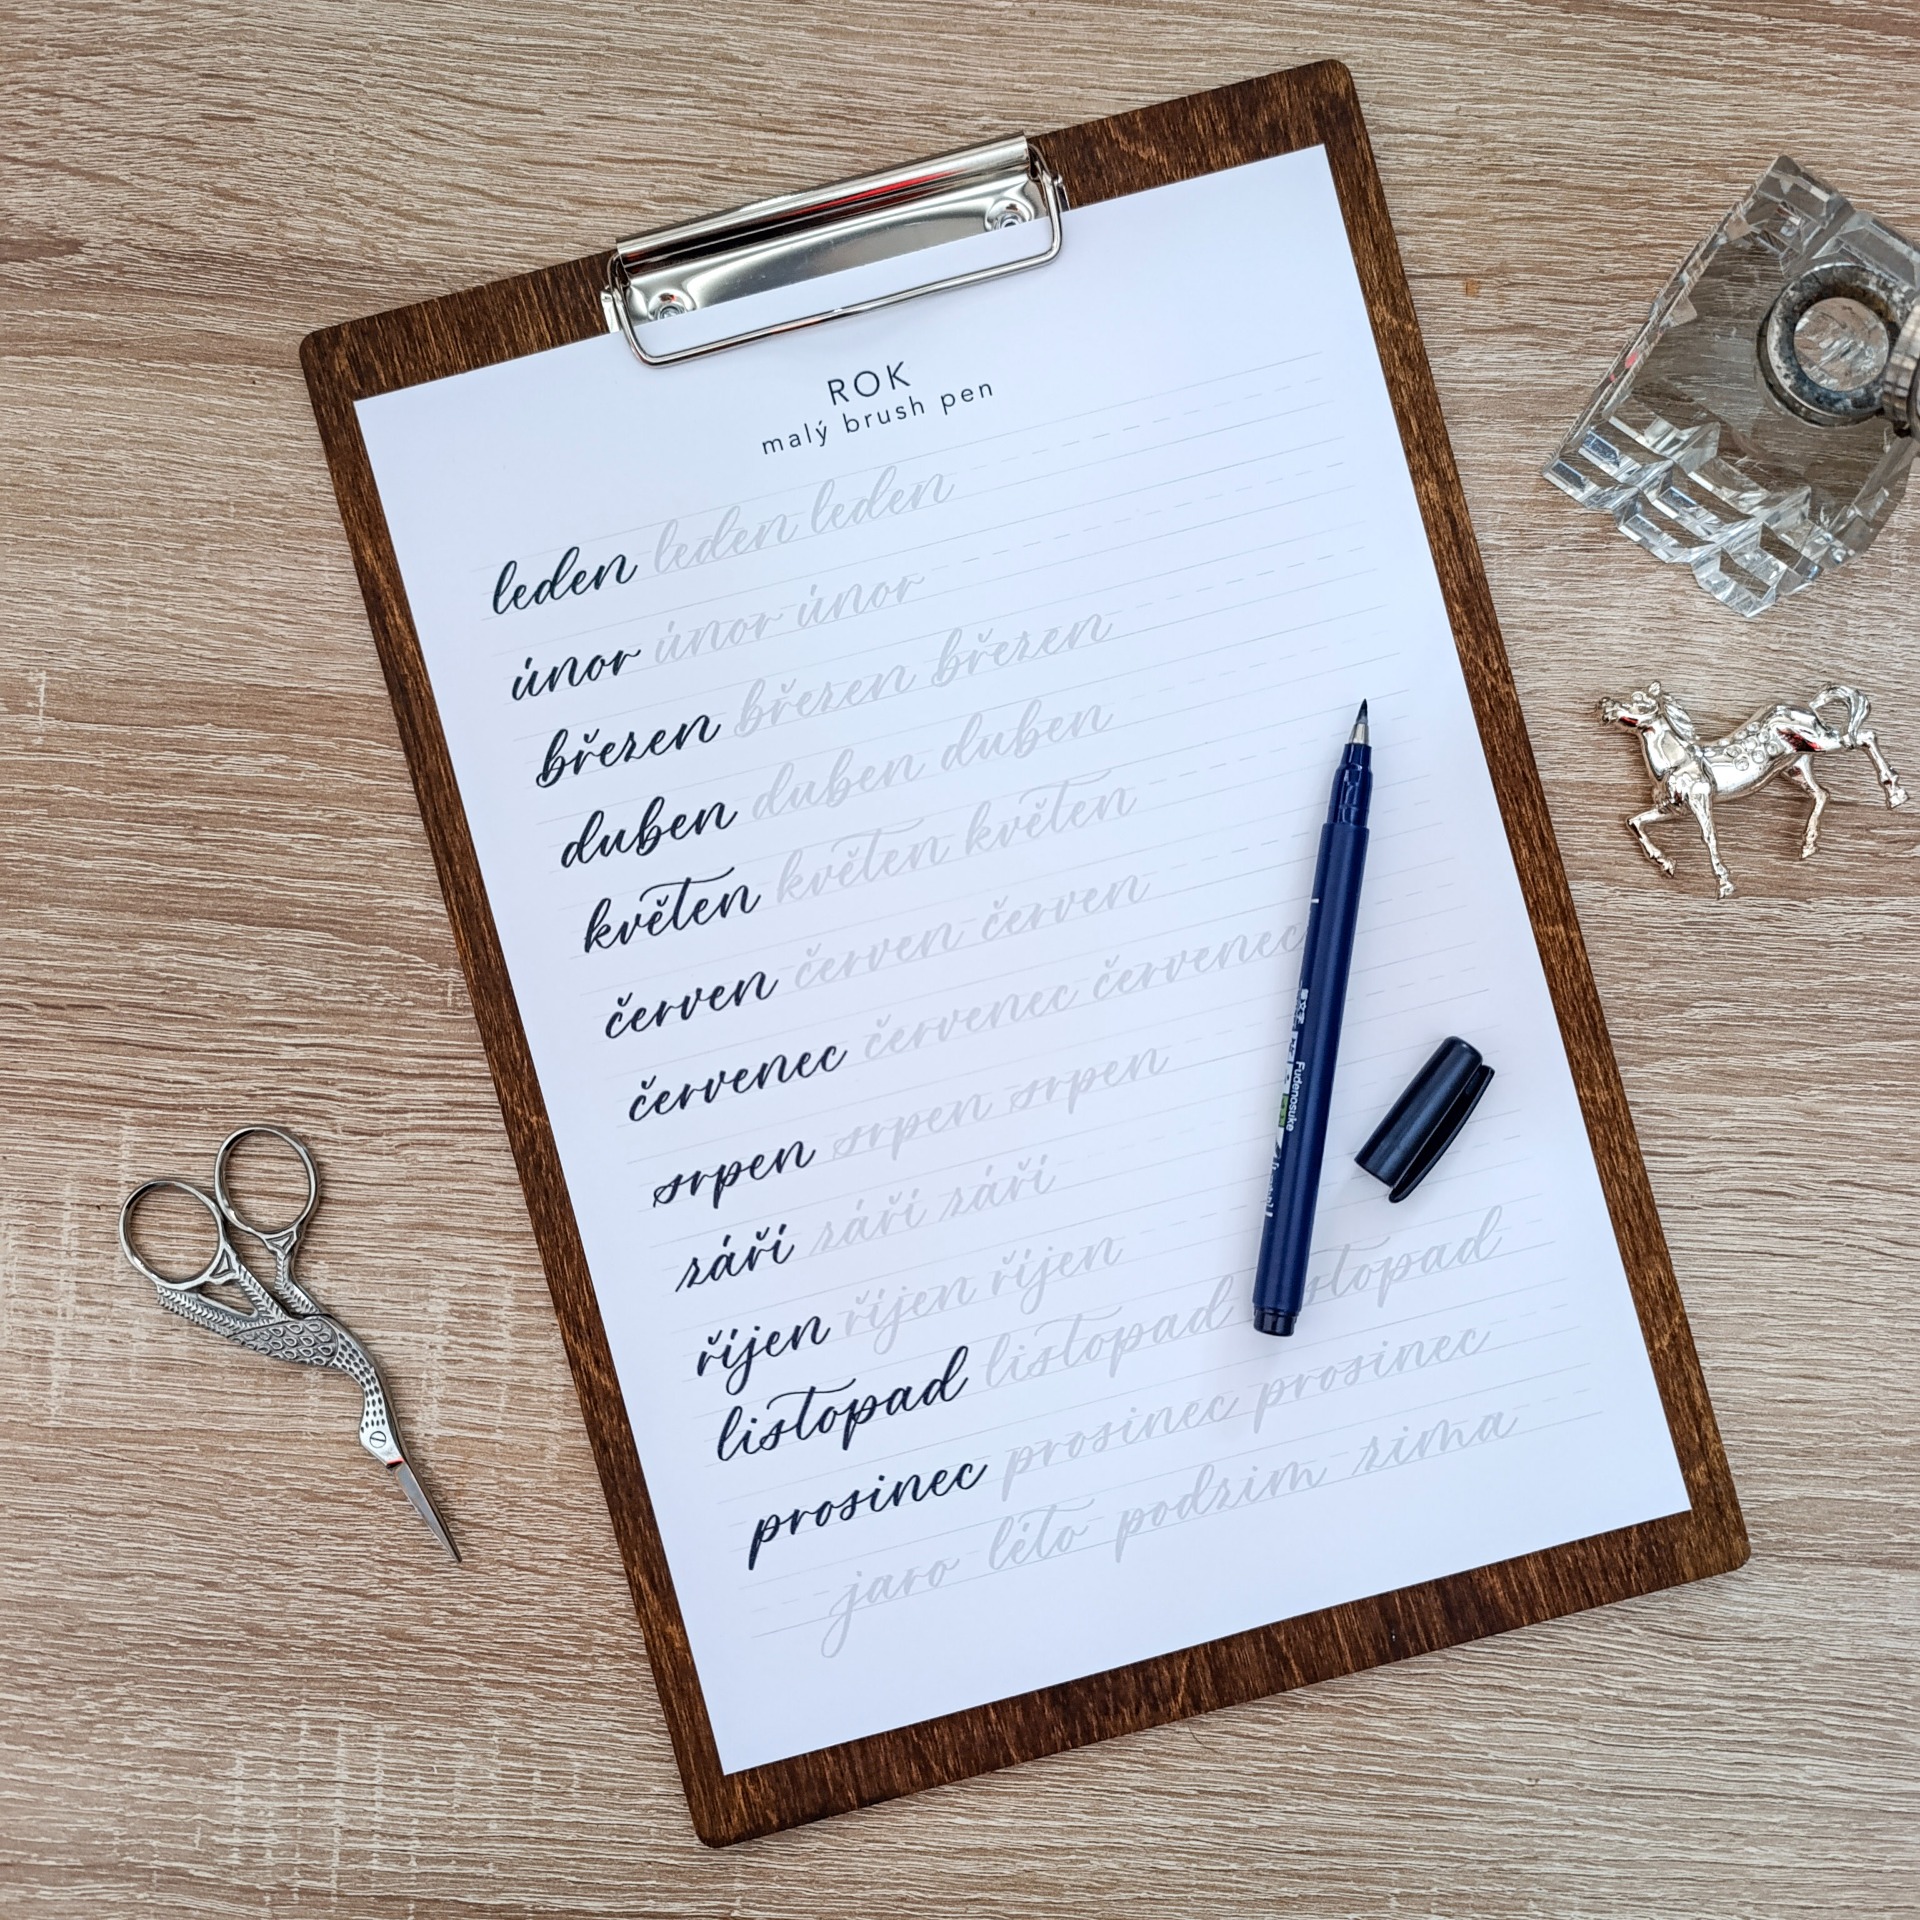 ROK
malý brush pen
leden leden leden
únor únor únor
březen březen březen
duben duben duben
květen květen květen
červen červen červen
červenec červenec červenec
srpen srpen srpen
září září září
říjen říjen říjen
listopad listopad listopad
prosinec prosinec prosinec
jaro léto podzim zima
Fudenosuke